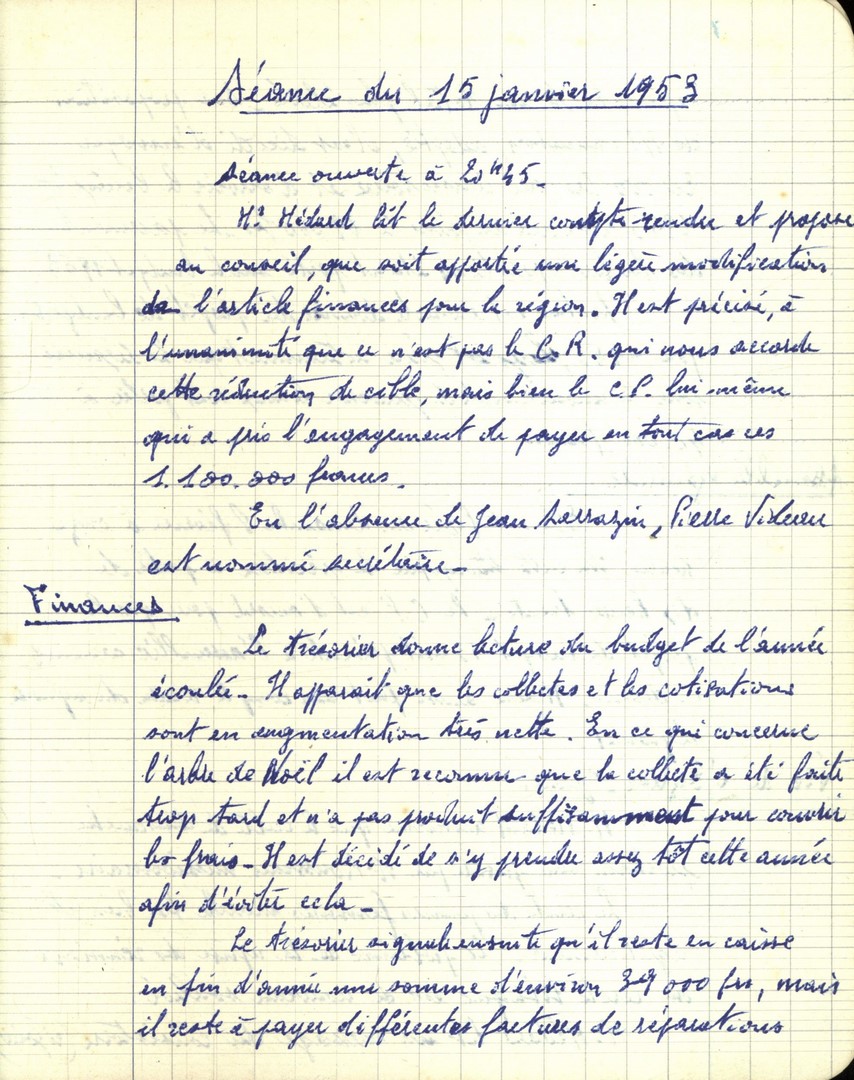 Séance du 15 janvier 1953
Séance ouverte à 20h45.
Mr Médard lit le dernier compte-rendu et propose
au conseil, que soit apportée une légère modification
de l'article finances pour la région. Il est précisé, à
l'unanimité que ce n'est pas le C.R. qui nous accorde
cette réduction de cible, mais bien le C.P. lui-même
qui a pris l'engagement de payer en tout cas ces
1.100.000 francs.
En l'absence de Jean Sarrazin, Pierre Videau
est nommé secrétaire.
Finances
Le trésorier donne lecture du budget de l'année
écoulée. Il apparait que les collectes et les cotisations
sont en augmentation très nette. En ce qui concerne
l'arbre de Noël il est reconnu que la collecte a été faite
trop tard et n'a pas produit suffisamment pour couvrir
les frais. Il est décidé de s'y prendre assez tôt cette année
afin d'éviter cela.
Le trésorier signale ensuite qu'il reste en caisse
en fin d'année une somme d'environ 39 000 frs, mais
il reste à payer différentes factures de réparations